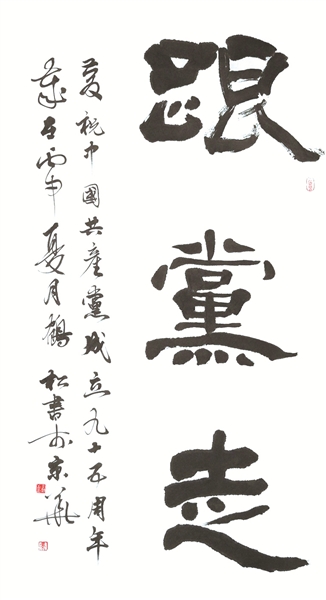 跟黨走
慶祝中國共産黨成立九十五周年
歲在丙申夏月鶴松書於京華